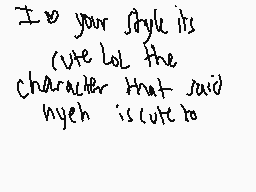 I ♥ your style its
cute LoL the
character that said
nyeh is cute to